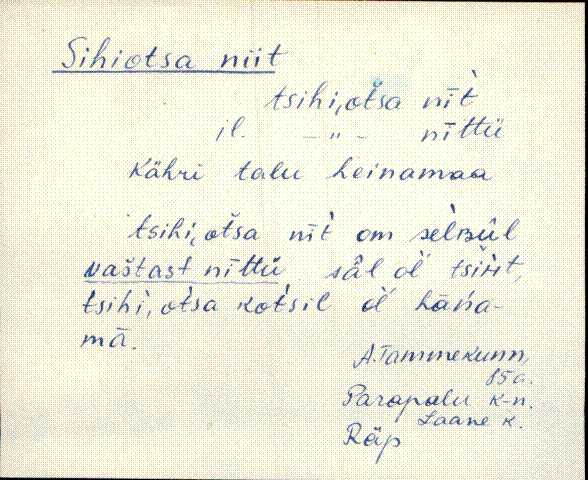 Sihiotsa niit
tsihi,otsa nīt̀
il. – „ – nīttü
Kähri talu heinamaa
tsihi,otsa nīt̀ om
vaštast nīttü säl öĺ
tsihi,otsa kotsil öĺ
mā.
A. Tammekunn,
85a.
Parapalu k-n.
Laane k.
Räp